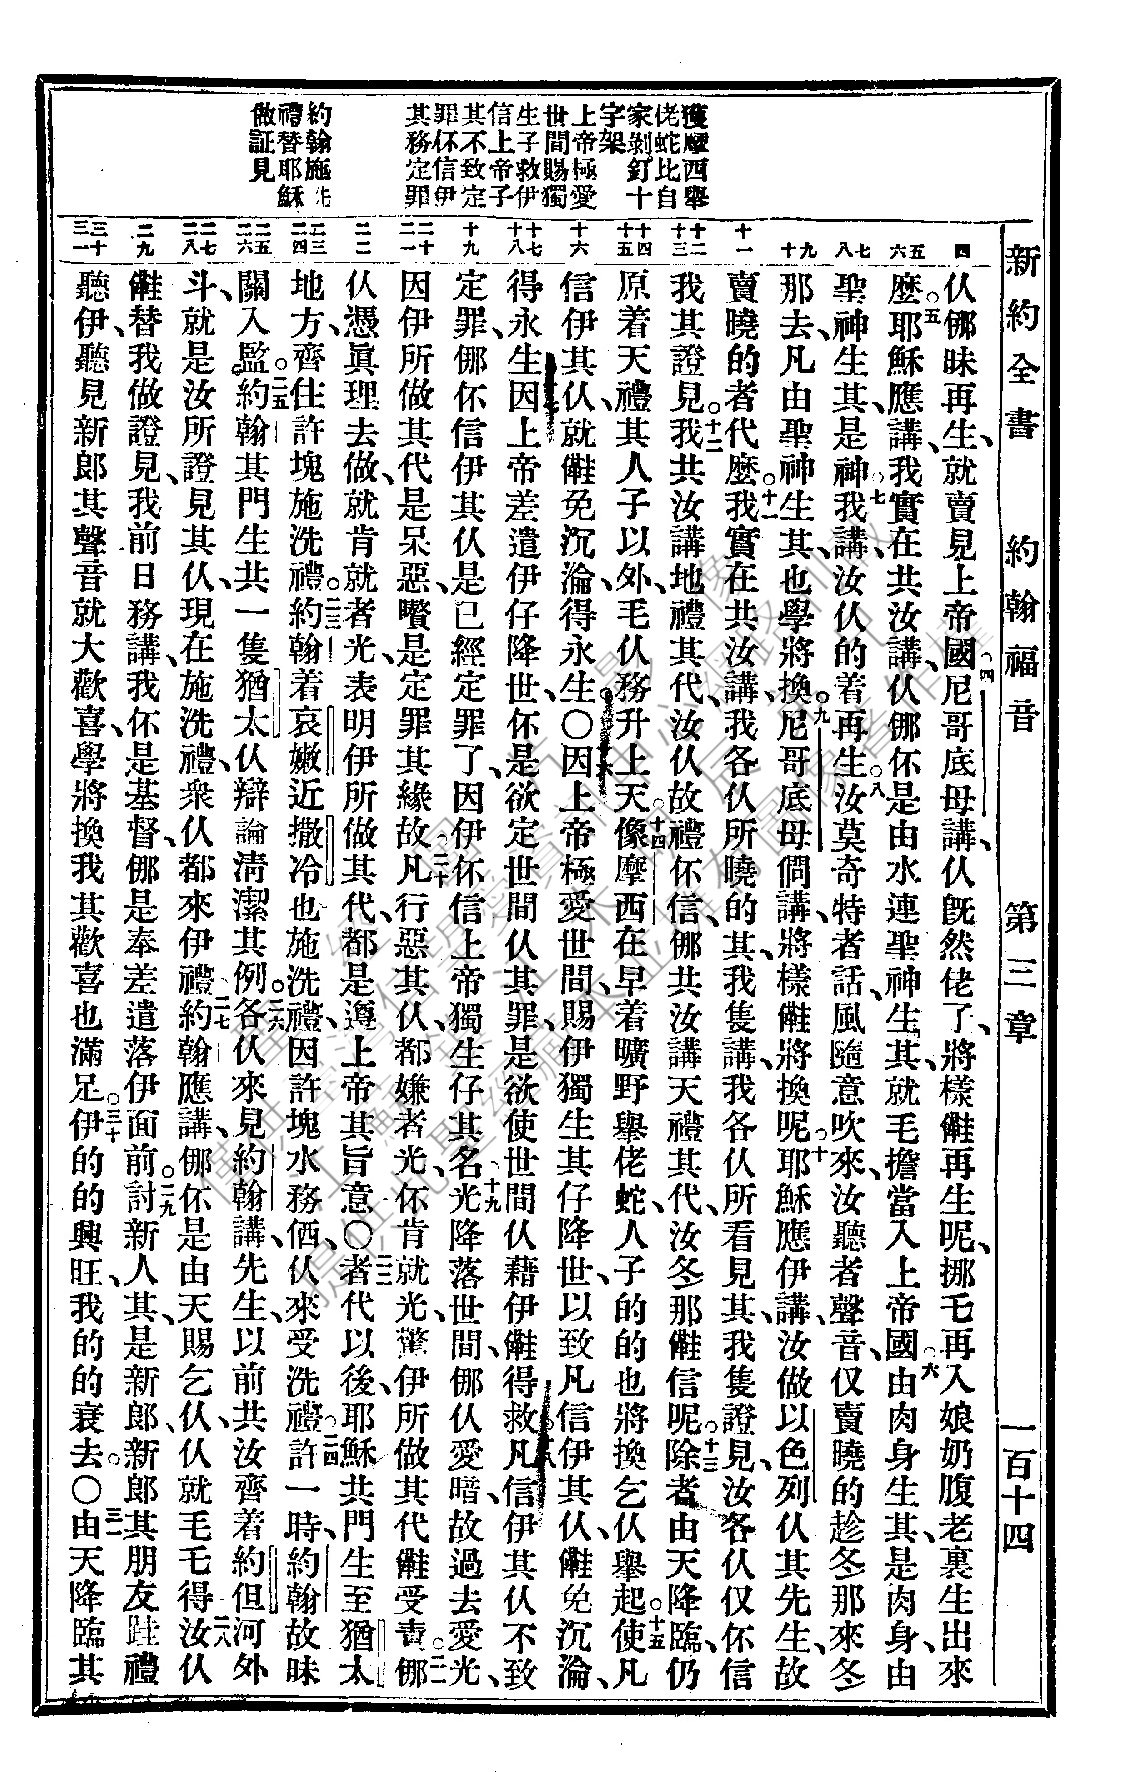 新約全書 約翰福音 第三章 一百十四
獲摩西舉
佬蛇比自
家剝釘十
字架
上帝極愛
世間賜獨
生子救伊
信上帝子
其不致定
罪伓信伊
其務定罪
約翰施洗
禮替耶穌
做証見
四
五
六
七
八
九
十
十一
十二
十三
十四
十五
十六
十七
十八
十九
二十
二一
二二
二三
二四
二五
二六
二七
二八
二九
三十
三一
仅㑚昧再生、就賣見上帝國。四尼哥底母講、仅旣然佬了、將樣㒰再生呢、挪乇再入娘奶腹老裏生出來
麽。五耶穌應講、我實在共汝講、仅㑚伓是由水連聖神生其、就毛擔當入上帝國。六由肉身生其、是肉身、由
聖神生其、是神。七我講、汝仅的着再生、汝莫奇特者話。八風隨意吹來、汝聽者聲音、仅賣曉的趁冬那來、冬
那去、凡由聖神生其、也學將換。九尼哥底母問講、將樣㒰將換呢。十耶穌應伊講、汝做以色列仅其先生、故
賣曉的者代麽。十一我實在共汝講、我各仅所曉的其、我隻講、我各仅所看見其、我隻證見、汝各仅仅伓信
我其證見。十二我共汝講地禮其代、汝仅故禮伓信、㑚共汝講天禮其代、汝冬那㒰信呢。十三除者由天降臨、仍
原着天禮其人子以外、毛仅務升上天。十四像摩西在早着曠野舉佬蛇、人子的的也將換乞仅舉起。十五使凡
信伊其仅、就㒰免沉淪、得永生〇因上帝極愛世間、賜伊獨生其仔降世、以致凡信伊其仅、㒰免沉淪、
得永生、因上帝差遣伊仔降世、伓是欲定世間仅其罪、是欲使世間仅藉伊㒰得救。十八凡信伊其仅不致
定罪、㑚伓信伊其仅、是已經定罪了、因伊伓信上帝獨生仔其名。十九光降落世間、㑚仅愛暗、故過去愛光、
因伊所做其代是呆惡、嚽是定罪其緣故。二十凡行惡其仅、都嫌者光、伓肯就光、驚伊所做其代㒰受責。二一㑚
仅憑眞理去做、就肯就者光、表明伊所做其代、都是遵上帝其旨意〇二二者代以後、耶穌共門生至猶太
地方、齊住許塊施洗禮。二三約翰着哀嫩近撒冷也施洗禮、因許塊水務価、仅來受洗禮。二四許一時約翰故昧
關入監。二五約翰其門生共一隻猶太仅辯論淸潔其例。二六各仅來見約翰講、先生、以前共汝齊着約但河外
斗、就是汝所證見其仅、現在施洗禮、衆仅都來伊禮。二七約翰應講、㑚伓是由天賜乞仅、仅就毛乇得。二八汝仅
㒰替我做證見、我前日務講、我伓是基督、㑚是奉差遣落伊面前。二九討新人其、是新郎、新郎其朋友跬禮
聽伊、聽見新郎其聲音就大歡喜、學將換我其歡喜也滿足。三十伊的的興旺、我的的衰去。〇三一由天降臨其